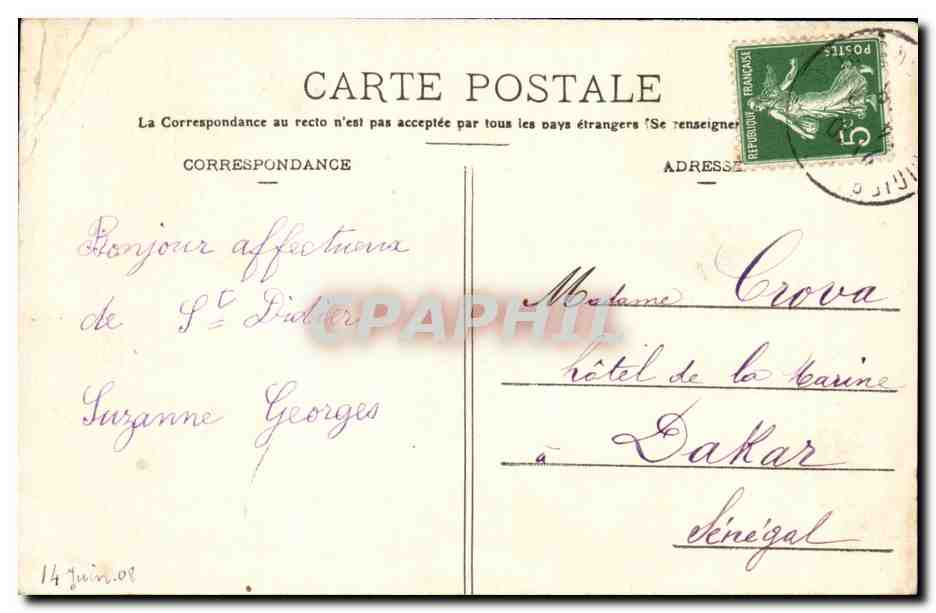 CARTE POSTALE
La Correspondance au recto n'est pas acceptée par tous les pays étrangers (Se renseigner
CORRESPONDANCE
ADRESSE
REPUBLIQUE FRANÇAISE
POSTES
5c
Bonjour affectueux
de St Didier
Suzanne Georges
14 Juin.08
Madame Crova
hôtel de la Marine
à Dakar
Sénégal
CPAPHIL